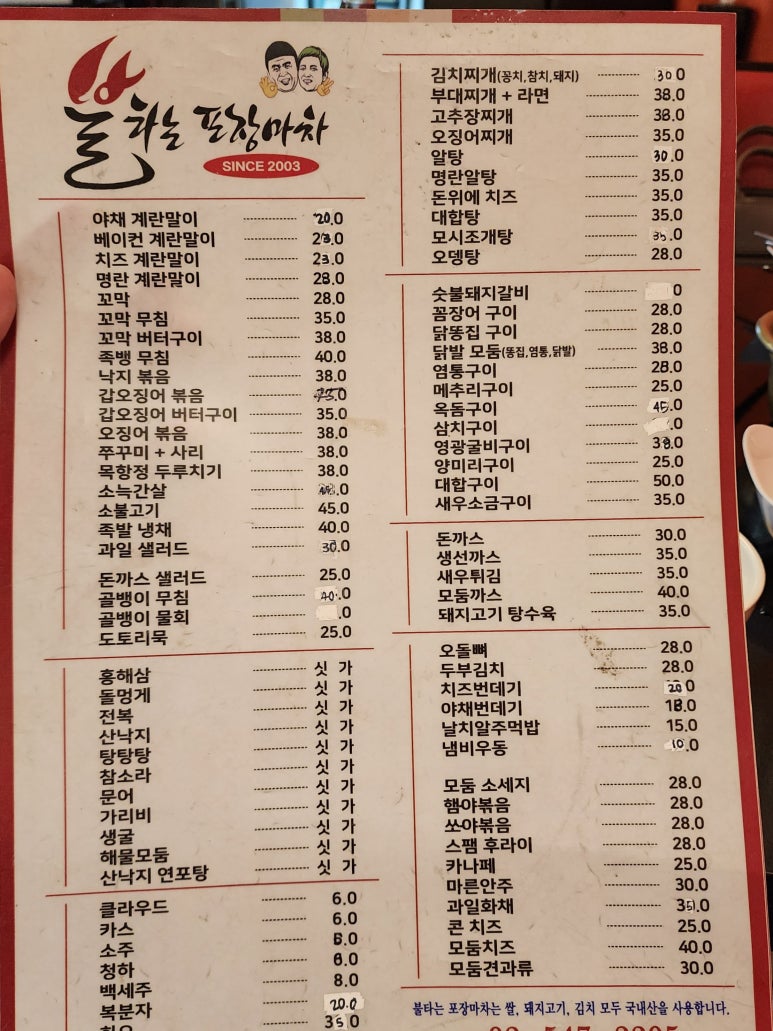 불타는 포장마차
SINCE 2003
야채 계란말이 20.0
베이컨 계란말이 23.0
치즈 계란말이 23.0
명란 계란말이 28.0
꼬막 28.0
꼬막 무침 35.0
꼬막 버터구이 38.0
족뱅 무침 40.0
낙지 볶음 38.0
갑오징어 볶음
갑오징어 버터구이 35.0
오징어 볶음 38.0
쭈꾸미 + 사리 38.0
목항정 두루치기 38.0
소늑간살
소불고기 45.0
족발 냉채 40.0
과일 샐러드 30.0
돈까스 샐러드 25.0
골뱅이 무침 40.0
골뱅이 물회 .0
도토리묵 25.0
홍해삼 싯 가
돌멍게 싯 가
전복 싯 가
산낙지 싯 가
탕탕탕 싯 가
참소라 싯 가
문어 싯 가
가리비 싯 가
생굴 싯 가
해물모둠 싯 가
산낙지 연포탕 싯 가
클라우드 6.0
카스 6.0
소주 6.0
청하 6.0
백세주 8.0
복분자 20.0
35.0
김치찌개(꽁치,참치,돼지) 30 0
부대찌개 + 라면 38.0
고추장찌개 38.0
오징어찌개 35.0
알탕 30.0
명란알탕 35.0
돈위에 치즈 35.0
대합탕 35.0
모시조개탕 35.0
오뎅탕 28.0
숯불돼지갈비 0
꼼장어 구이 28.0
닭똥집 구이 28.0
닭발 모둠(똥집,염통,닭발) 38.0
염통구이 28.0
메추리구이 25.0
옥돔구이 45.0
삼치구이 .0
영광굴비구이 38.0
양미리구이 25.0
대합구이 50.0
새우소금구이 35.0
돈까스 30.0
생선까스 35.0
새우튀김 35.0
모둠까스 40.0
돼지고기 탕수육 35.0
오돌뼈 28.0
두부김치 28.0
치즈번데기 20 0
야채번데기 18.0
날치알주먹밥 15.0
냄비우동 10.0
모둠 소세지 28.0
햄야볶음 28.0
쏘야볶음 28.0
스팸 후라이 28.0
카나페 25.0
마른안주 30.0
과일화채 35.0
콘 치즈 25.0
모둠치즈 40.0
모둠견과류 30.0
불타는 포장마차는 쌀, 돼지고기, 김치 모두 국내산을 사용합니다.